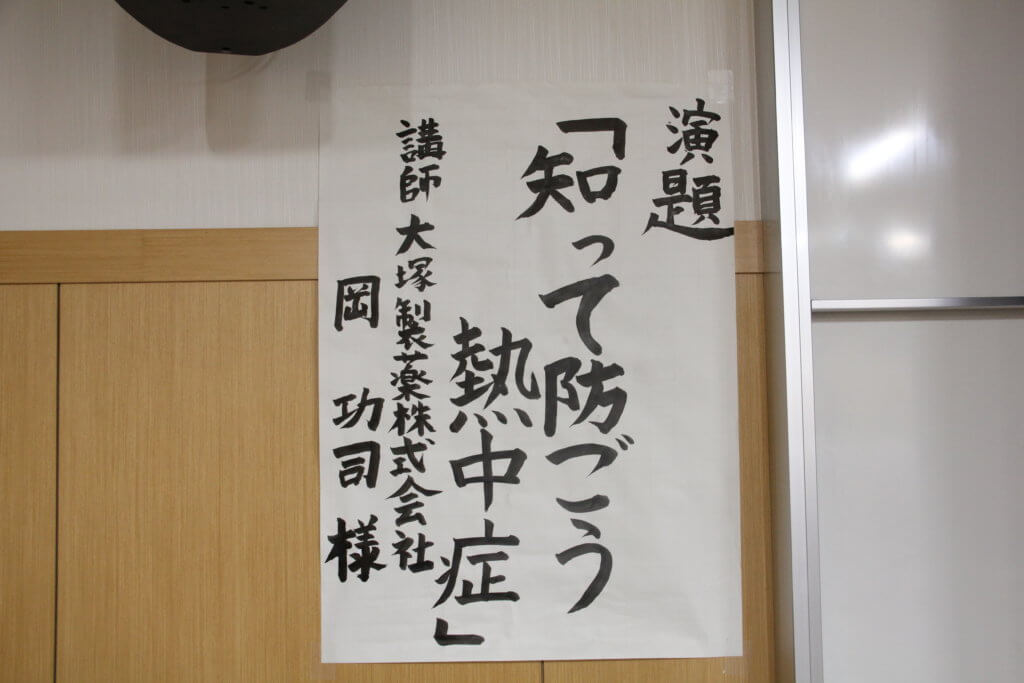 演題
「知って防づこう
熱中症」
講師 大塚製薬株式会社
岡 功司 様